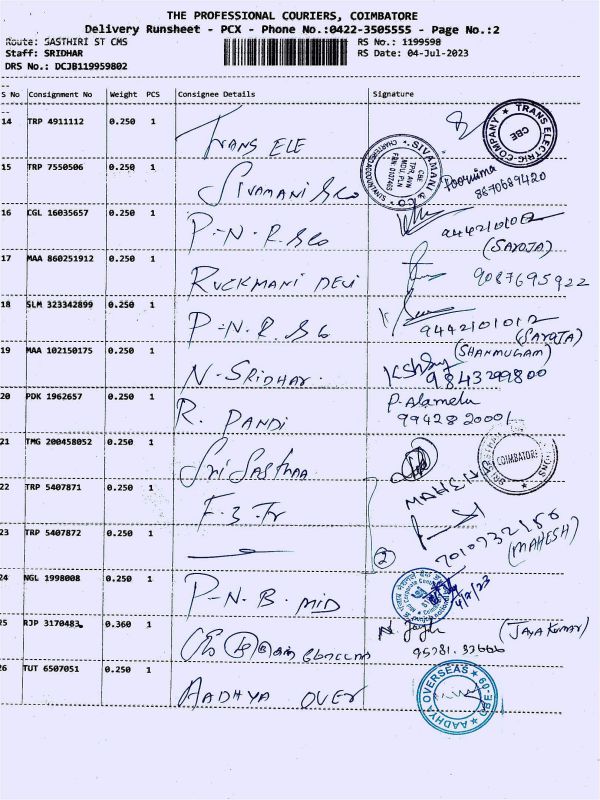 THE PROFESSIONAL COURIERS, COIMBATORE
Delivery Runsheet - PCX - Phone No.:0422-3505555 - Page No.:2
Route: SASTHIRI ST CMS
RS No.: 1199598
Staff: SRIDHAR
RS Date: 04-Jul-2023
DRS No.: DCJB119959802
S No Consignment No Weight PCS Consignee Details Signature
14 TRP 4911112 0.250 1 TRANS ELE
TRANS ELECTRIC COMPANY CBE
15 TRP 7550506 0.250 1 SIVAMANI & Co
SIVAMANI & CO CBE
Poornima
8670689420
16 CGL 16035657 0.250 1 P-N-R & Co
(SAROJA)
17 MAA 860251912 0.250 1 RUCKMANI DEVI
9087695922
18 SLM 323342899 0.250 1 P-N-R &
9442101012
(SAROJA)
19 MAA 102150175 0.250 1 N-SRIDHAR.
(SHANMUGAM)
20 PDK 1962657 0.250 1 R. PANDI
P.Alamelu
21 TMG 200458052 0.250 1 Sri Sasthaa
COIMBATORE
22 TRP 5407871 0.250 1
MAHESH
23 TRP 5407872 0.250 1
2
(MAHESH)
24 NGL 1998008 0.250 1 P-N-B-MID
4/7/23
25 RJP 3170483 0.360 1
(JAYA KUMAR)
26 TUT 6507051 0.250 1 AADHYA OVER
AADHYA OVERSEAS CBE-09